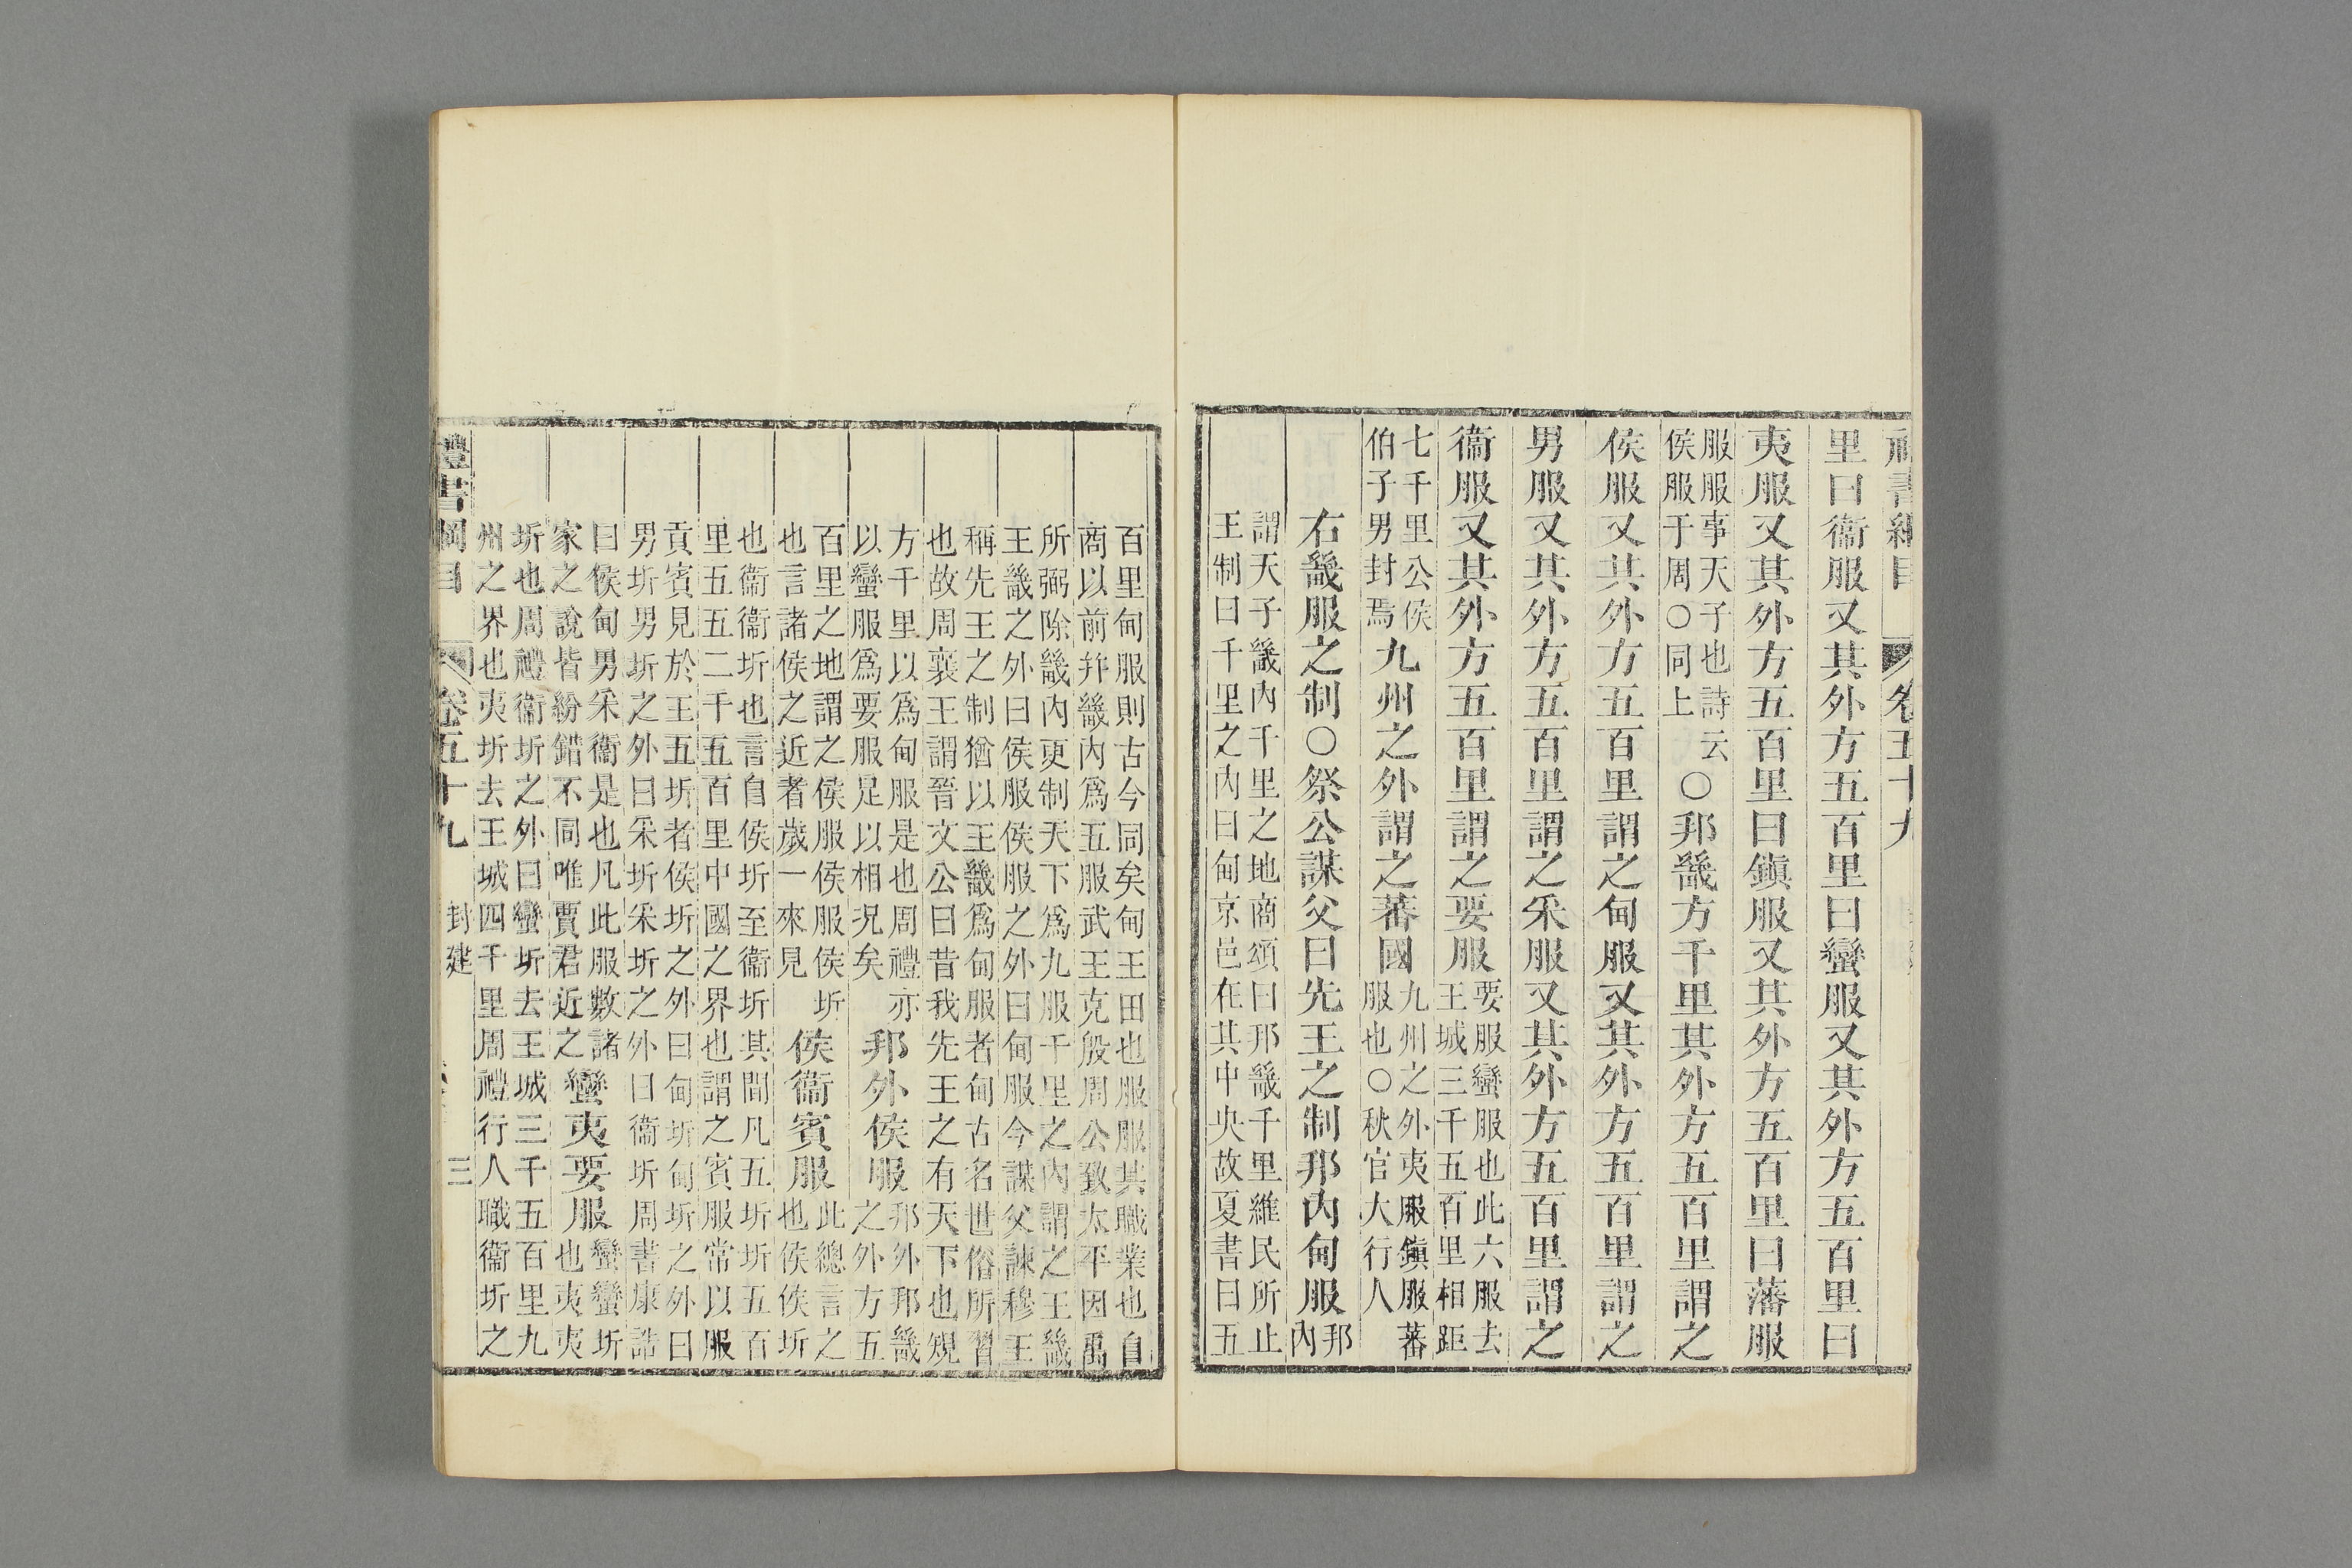 禮書綱目 卷五十九
里曰衞服又其外方五百里曰蠻服又其外方五百里曰
夷服又其外方五百里曰鎭服又其外方五百里曰藩服
服服事天子也詩云
侯服于周○同上
○邦畿方千里其外方五百里謂之
侯服又其外方五百里謂之甸服又其外方五百里謂之
男服又其外方五百里謂之采服又其外方五百里謂之
衞服又其外方五百里謂之要服
要服蠻服也此六服去
王城三千五百里相距
七千里公侯
伯子男封焉
九州之外謂之蕃國
九州之外夷服鎭服蕃
服也○秋官大行人
右畿服之制○祭公謀父曰先王之制邦內甸服
邦
內
謂天子畿內千里之地商頌曰邦畿千里維民所止
王制曰千里之內曰甸京邑在其中央故夏書曰五
百里甸服則古今同矣甸王田也服服其職業也自
商以前幷畿內爲五服武王克殷周公致太平因禹
所弼除畿內更制天下爲九服千里之內謂之王畿
王畿之外曰侯服侯服之外曰甸服今謀父諫穆王
稱先王之制猶以王畿爲甸服者甸古名世俗所習
也故周襄王謂晉文公曰昔我先王之有天下也規
方千里以爲甸服是也周禮亦
以蠻服爲要服足以相況矣
邦外侯服
邦外邦畿
之外方五
百里之地謂之侯服侯服侯圻
也言諸侯之近者歲一來見
侯衞賓服
此總言之
也侯侯圻
也衞衞圻也言自侯圻至衞圻其間凡五圻圻五百
里五五二千五百里中國之界也謂之賓服常以服
貢賓見於王五圻者侯圻之外曰甸圻甸圻之外曰
男圻男圻之外曰采圻采圻之外曰衞圻周書康誥
曰侯甸男采衞是也凡此服數諸
家之說皆紛錯不同唯賈君近之
蠻夷要服
蠻蠻圻
也夷夷
圻也周禮衞圻之外曰蠻圻去王城三千五百里九
州之界也夷圻去王城四千里周禮行人職衞圻之
禮書綱目 卷五十九 封建 三